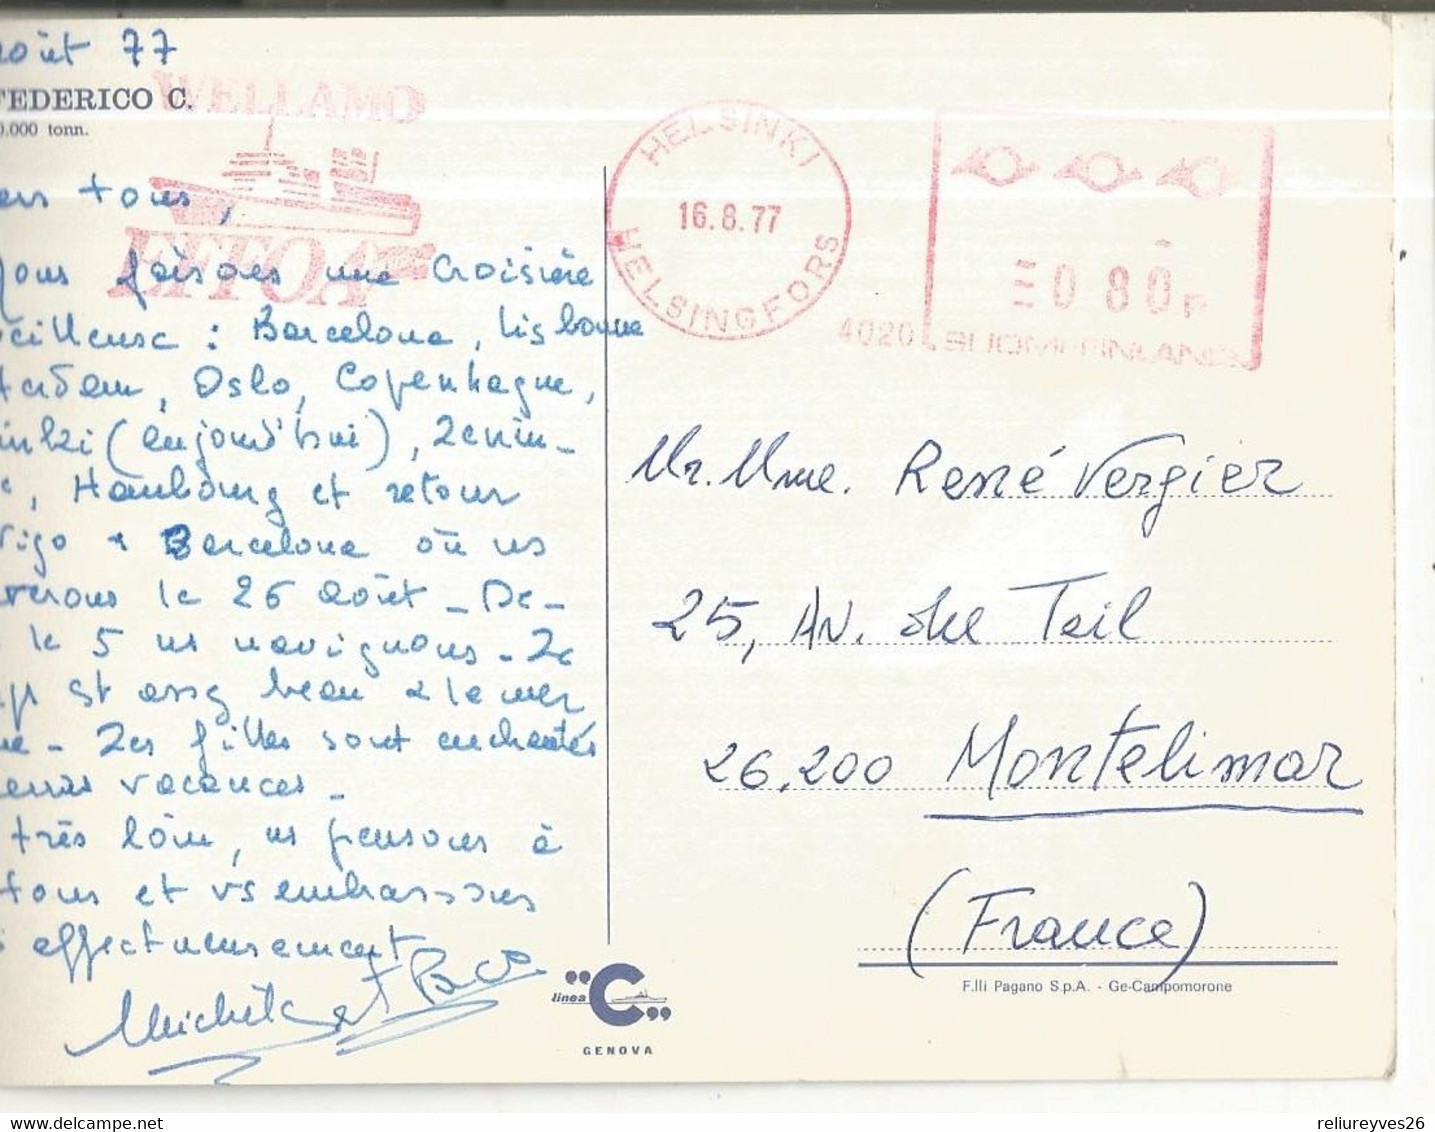 oût 77
FEDERICO C.
0.000 tonn.
WELLAMO
EFFOA
HELSINKI
16.8.77
HELSINGFORS
080 P
4020 SUOMI-FINLAND
ers tous,
ous faisons une Croisière
veilleuse : Barcelone, Lisbonne
terdam, Oslo, Copenhague,
sinki (aujourd'hui), Lenin-
, Hambourg et retour
Vigo & Barcelone où ns
verons le 26 août - De-
le 5 ns naviguons - Le
ps est assez beau & la mer
me - Les filles sont enchantés
vacances -
très loin, ns pensons à
tous et vs embrassons
s affectueusement
Michèle et
Mr. Mme. René Vergier
25, Av. du Teil
26.200 Montelimar
(France)
F.lli Pagano S.p.A. - Ge-Campomorone
linea "C"
GENOVA
© delcampe.net
reliureyves26